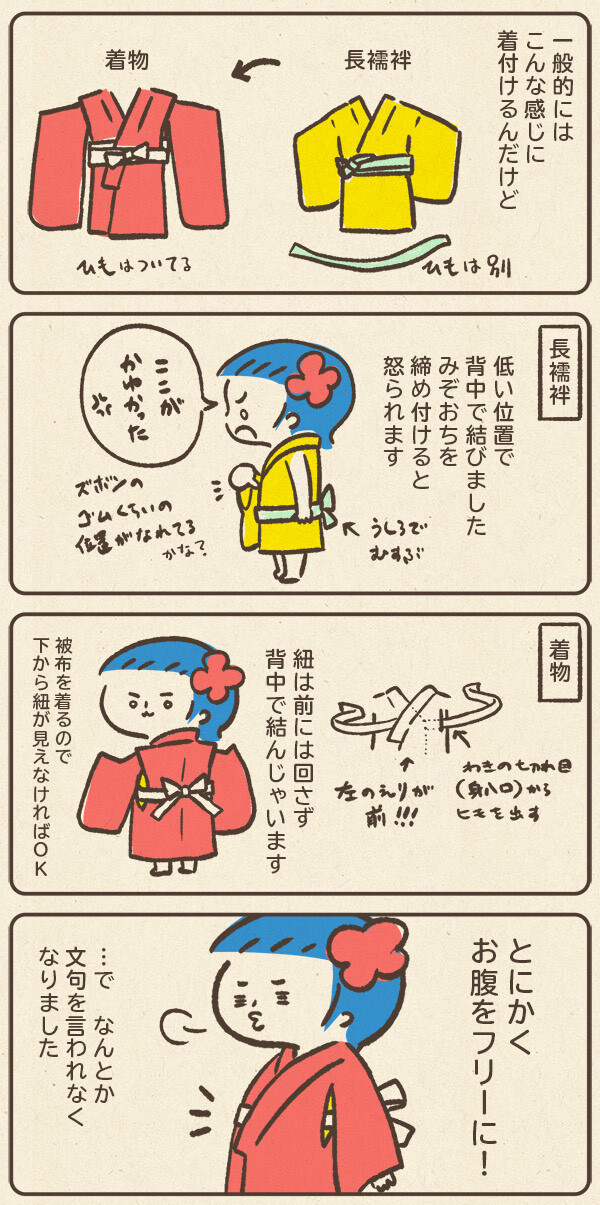 一般的には
こんな感じに
着付けるんだけど
長襦袢
着物
ひもは別
ひもはついてる
長襦袢
低い位置で
背中で結びました
みぞおちを
締め付けると
怒られます
ここが
かゆかった
うしろで
むすぶ
ズボンの
ゴムくらいの
位置がなれてる
かな?
着物
わきの切れ目
(身八口)から
ヒモを出す
左のえりが
前!!!
紐は前には回さず
背中で結んじゃいます
被布を着るので
下から紐が見えなければOK
とにかく
お腹をフリーに!
…で なんとか
文句を言われなく
なりました